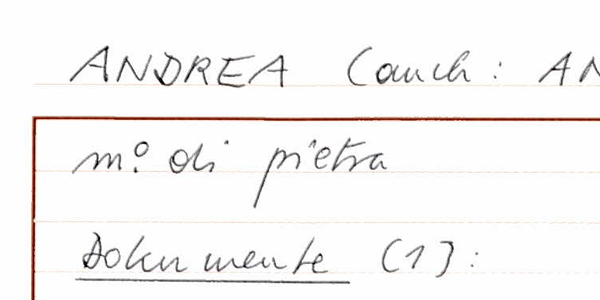 ANDREA (auch: AN
m.º di pietra
Dokumente (1):